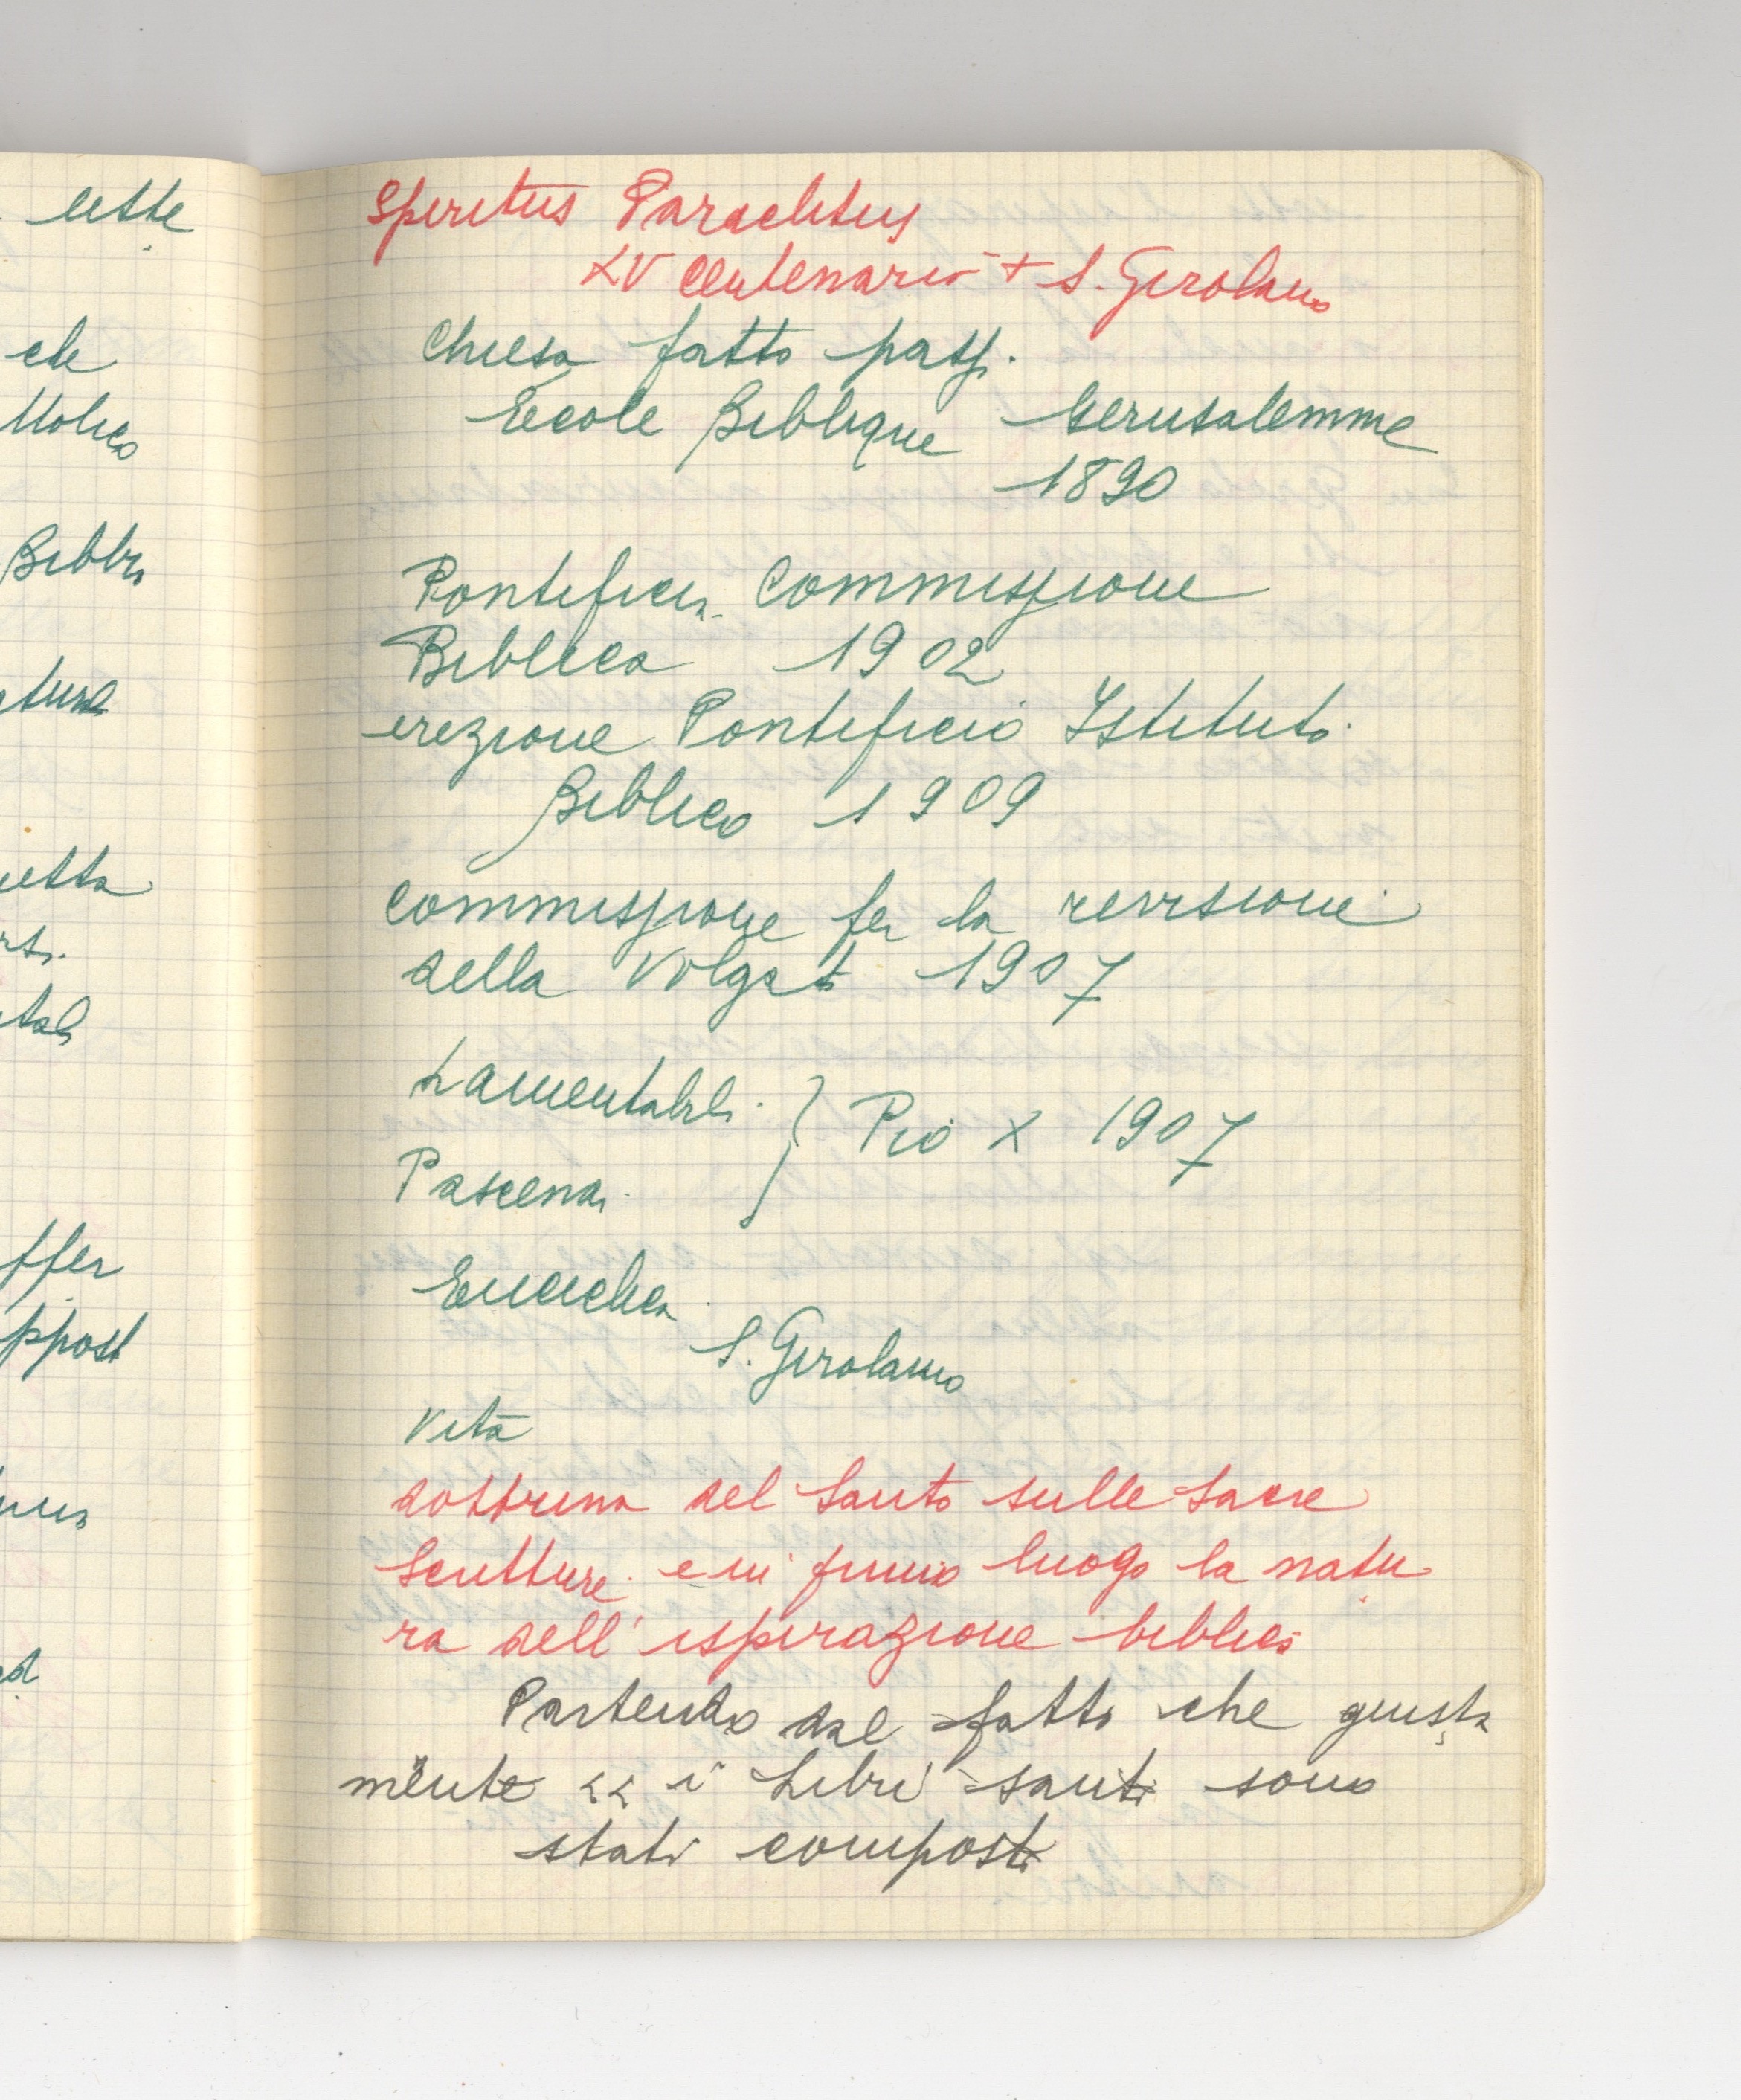 lette
che
ttolico
Bibbia
ffer
ppost
Spiritus Paraclitus
XV Centenario + S. Girolamo
Chiesa fatto passi
École Biblique Gerusalemme
1890
Pontificia Commissione
Biblica 1902
erezione Pontificio Istituto
Biblico 1909
Commissione per la revisione
della Volgata 1907
Lamentabili
Pascendi } Pio X 1907
Enciclica
S. Girolamo
Vita
dottrina del Santo sulle Sacre
Scritture e in primo luogo la natu
ra dell'ispirazione biblica
Partendo dal fatto che giusta
mente << i Libri santi sono
stati composti